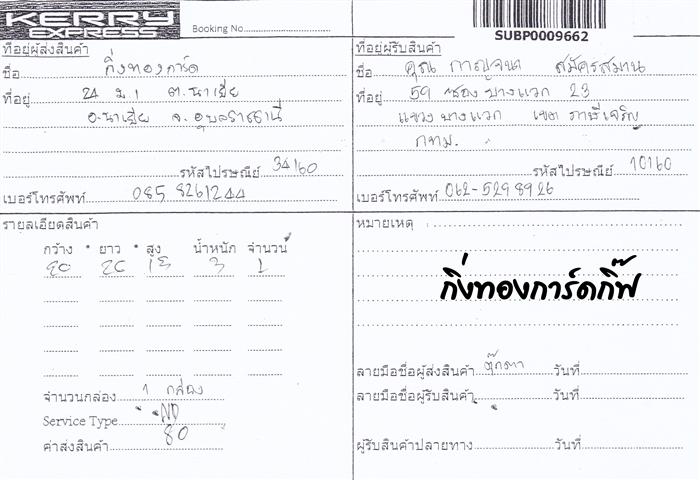 KERRY
EXPRESS
Booking No.
SUBP0009662
ที่อยู่ผู้ส่งสินค้า
ชื่อ กิ่งทองการ์ด
ที่อยู่ 24 ม.1 ต.นาเยีย
อ.นาเยีย จ.อุบลราชธานี
รหัสไปรษณีย์ 34160
เบอร์โทรศัพท์ 085 8261244
ที่อยู่ผู้รับสินค้า
ชื่อ คุณ กาญจนา สมัครสมาน
ที่อยู่ 59 ซอย บางแวก 23
แขวง บางแวก เขต ภาษีเจริญ
กทม.
รหัสไปรษณีย์ 10160
เบอร์โทรศัพท์ 062-5298926
รายละเอียดสินค้า
กว้าง * ยาว * สูง น้ำหนัก จำนวน
3 1
จำนวนกล่อง 1 กล่อง
Service Type ND
ค่าส่งสินค้า 80
หมายเหตุ
กิ่งทองการ์ดกิ๊ฟ
ลายมือชื่อผู้ส่งสินค้า ตุ๊กตา วันที่
ลายมือชื่อผู้รับสินค้า วันที่
ผู้รับสินค้าปลายทาง วันที่